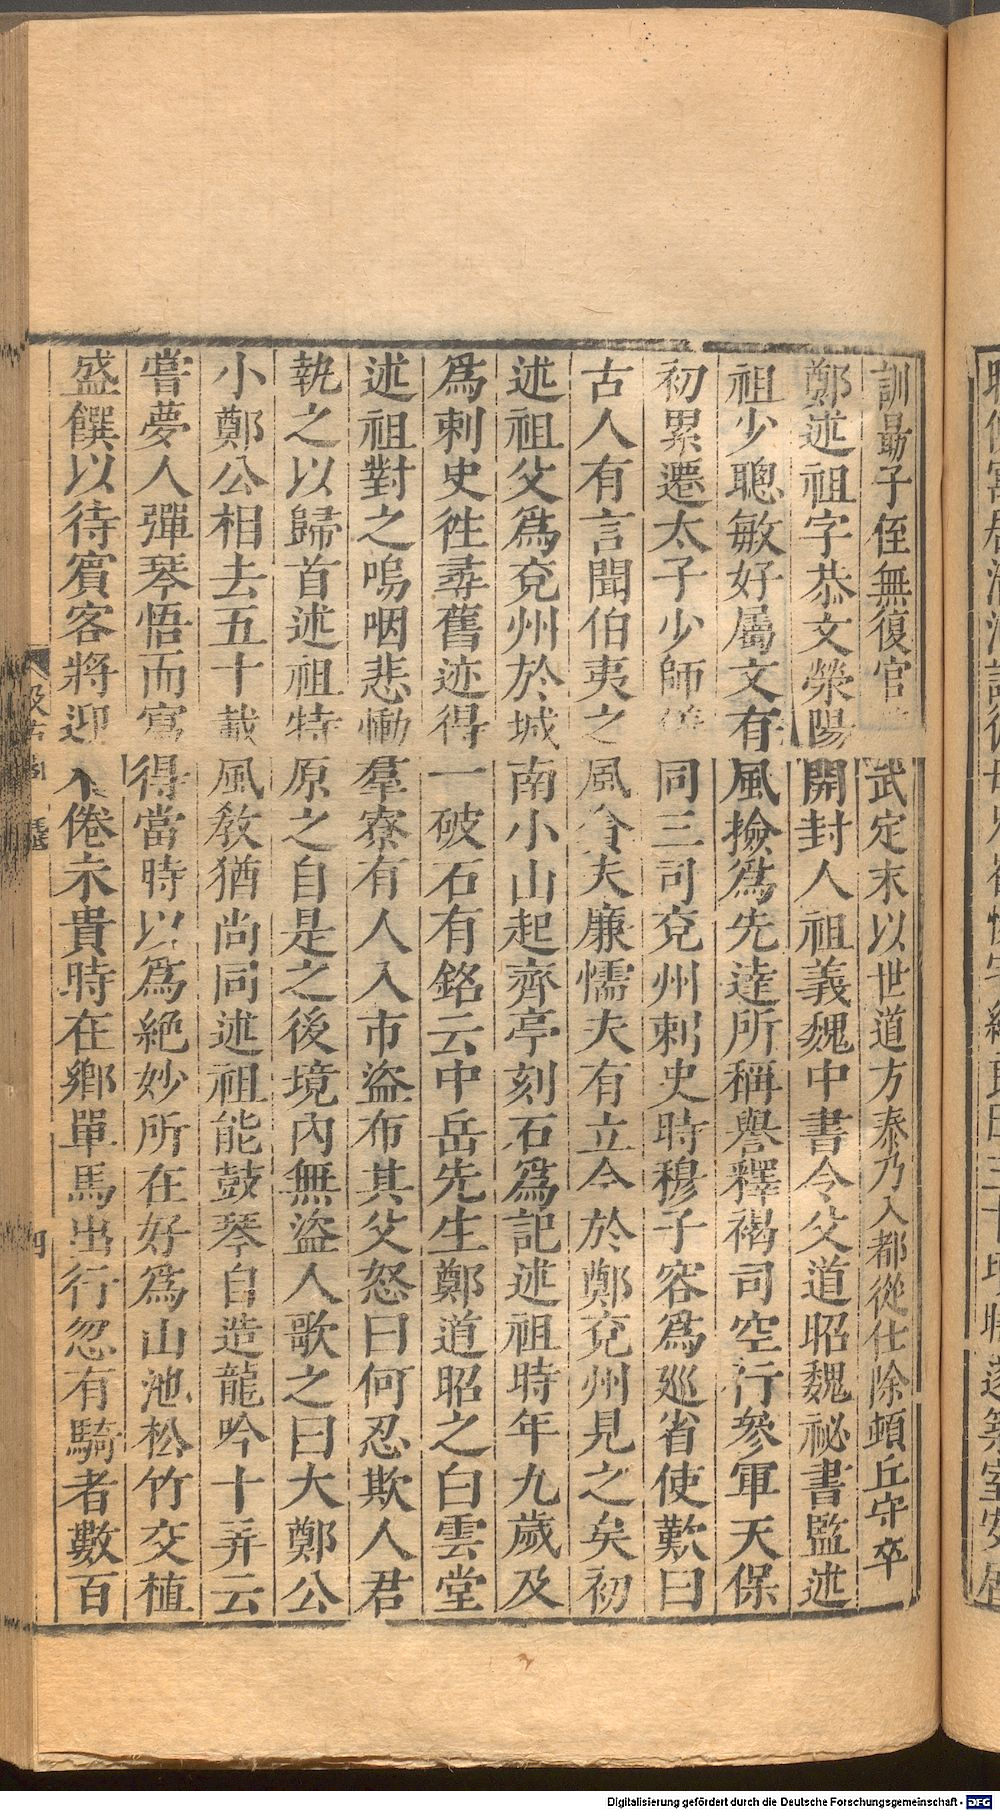 訓勗子侄無復官武定末以世道方泰乃入都從仕除頓丘守卒
鄭述祖字恭文滎陽開封人祖義魏中書令父道昭魏祕書監述
祖少聰敏好屬文有風撿爲先達所稱譽釋褐司空行參軍天保
初累遷太子少師儀同三司兗州刺史時穆子容爲廵省使歎曰
古人有言聞伯夷之風貪夫廉懦夫有立今於鄭兗州見之矣初
述祖父爲兗州於城南小山起齊亭刻石爲記述祖時年九歲及
爲刺史徃尋舊迹得一破石有銘云中岳先生鄭道昭之白雲堂
述祖對之嗚咽悲慟羣寮有人入市盜布其父怒曰何忍欺人君
執之以歸首述祖特原之自是之後境內無盜人歌之曰大鄭公
小鄭公相去五十載風敎猶尚同述祖能鼓琴自造龍吟十弄云
嘗夢人彈琴悟而寫得當時以爲絕妙所在好爲山池松竹交植
盛饌以待賓客將迎不倦未貴時在鄉單馬出行忽有騎者數百
汲古
Digitalisierung gefördert durch die Deutsche Forschungsgemeinschaft - DFG